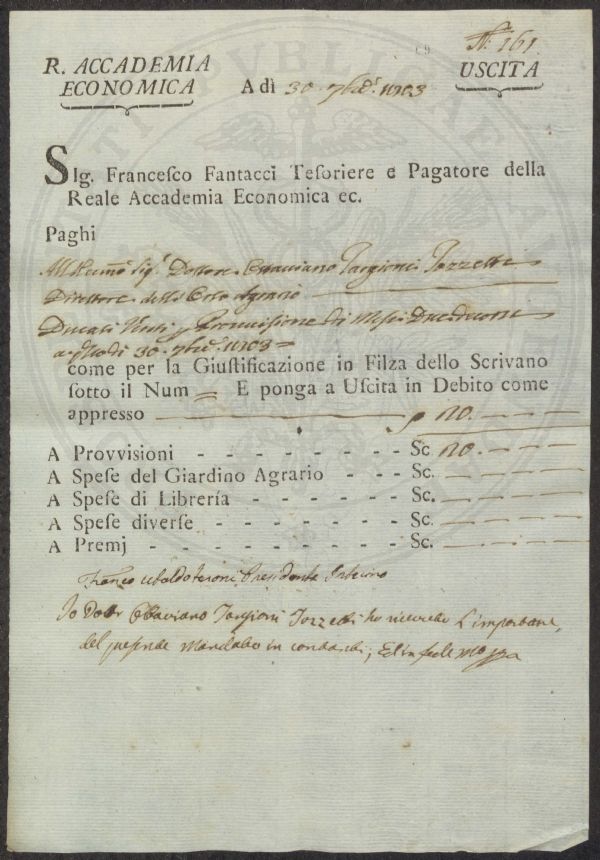 N.° 161.
R. ACCADEMIA
ECONOMICA
A dì 30. 7bre. 1803
USCITA
SIg. Francesco Fantacci Teſoriere e Pagatore della
Reale Accademia Economica ec.
Paghi
Sig.r Dottore Ottaviano Targioni Tozzetti
Direttore dell' Orto Agrario
Ducati Venti p Provvisione di Mesi Due decorsi
30. 7bre. 1803 =
come per la Giuſtificazione in Filza dello Scrivano
ſotto il Num = E ponga a Uſcita in Debito come
appresso 20. — — —
A Provvisioni - - - - - - - - Sc. 20. — — —
A Speſe del Giardino Agrario - - - Sc. — — — —
A Speſe di Librería - - - - - - Sc. — — — —
A Speſe diverſe - - - - - - - Sc. — — — —
A Premj - - - - - - - - - Sc. — — — —
Presidente Interino
Io Dotr Ottaviano Targioni Tozzetti ho ricevuto L'importare
del presente Mandato in contanti, Ed in fede mo ppa